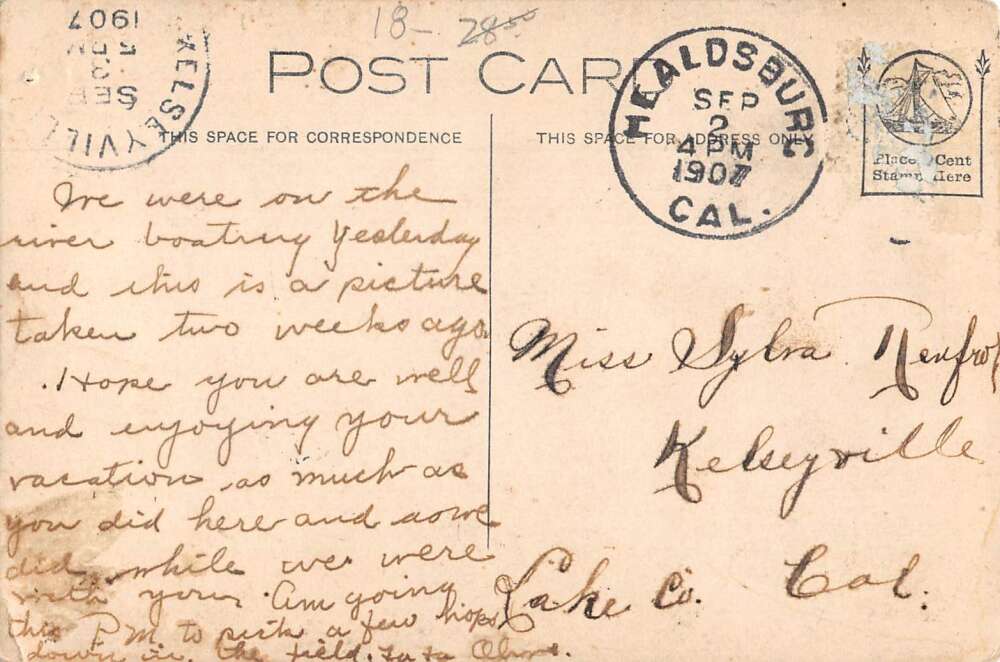 18- 28.00
KELSEYVILL
SEP
1907
POST CARD
HEALDSBURG
SEP
2
4 PM
1907
CAL.
Place 1 Cent
Stamp Here
THIS SPACE FOR CORRESPONDENCE
THIS SPACE FOR ADDRESS ONLY
We were on the
river boating Yesterday
and this is a picture
taken two weeks ago.
Hope you are well
and enjoying your
vacation as much as
you did here and as we
did while we were
with you. Am going
this P.M. to pick a few hops
down in the field. ta ta
Miss Sylva Renfro
Kelseyville
Lake Co. Cal.